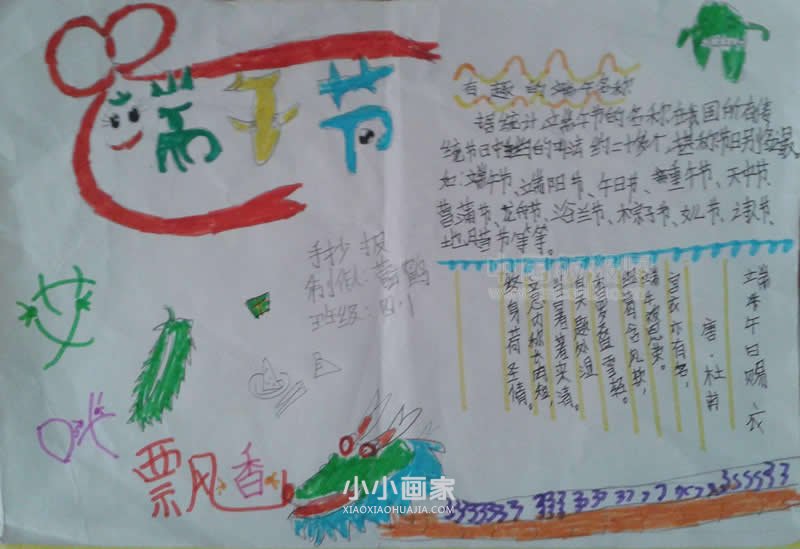 端午节
有趣的端午名称
据统计 这端午节的名称在我国所有传
统节日中 的叫法 约二十多个,堪称节日别
如:端午节、端阳节、午日节、重午节、天中节、
菖蒲节、龙舟节、浴兰节、粽子节、女儿节、
节等等。
手抄报
制作人:
班级:四.1
端午日赐衣
唐·杜甫
宫衣亦有名,
端午被恩荣。
细葛含风软,
香罗叠雪轻。
自天题处湿
当暑著来清。
意内称长短,
终身荷圣情。
艾
叶
飘香
小小画家
XIAOXIAOHUAJIA.COM